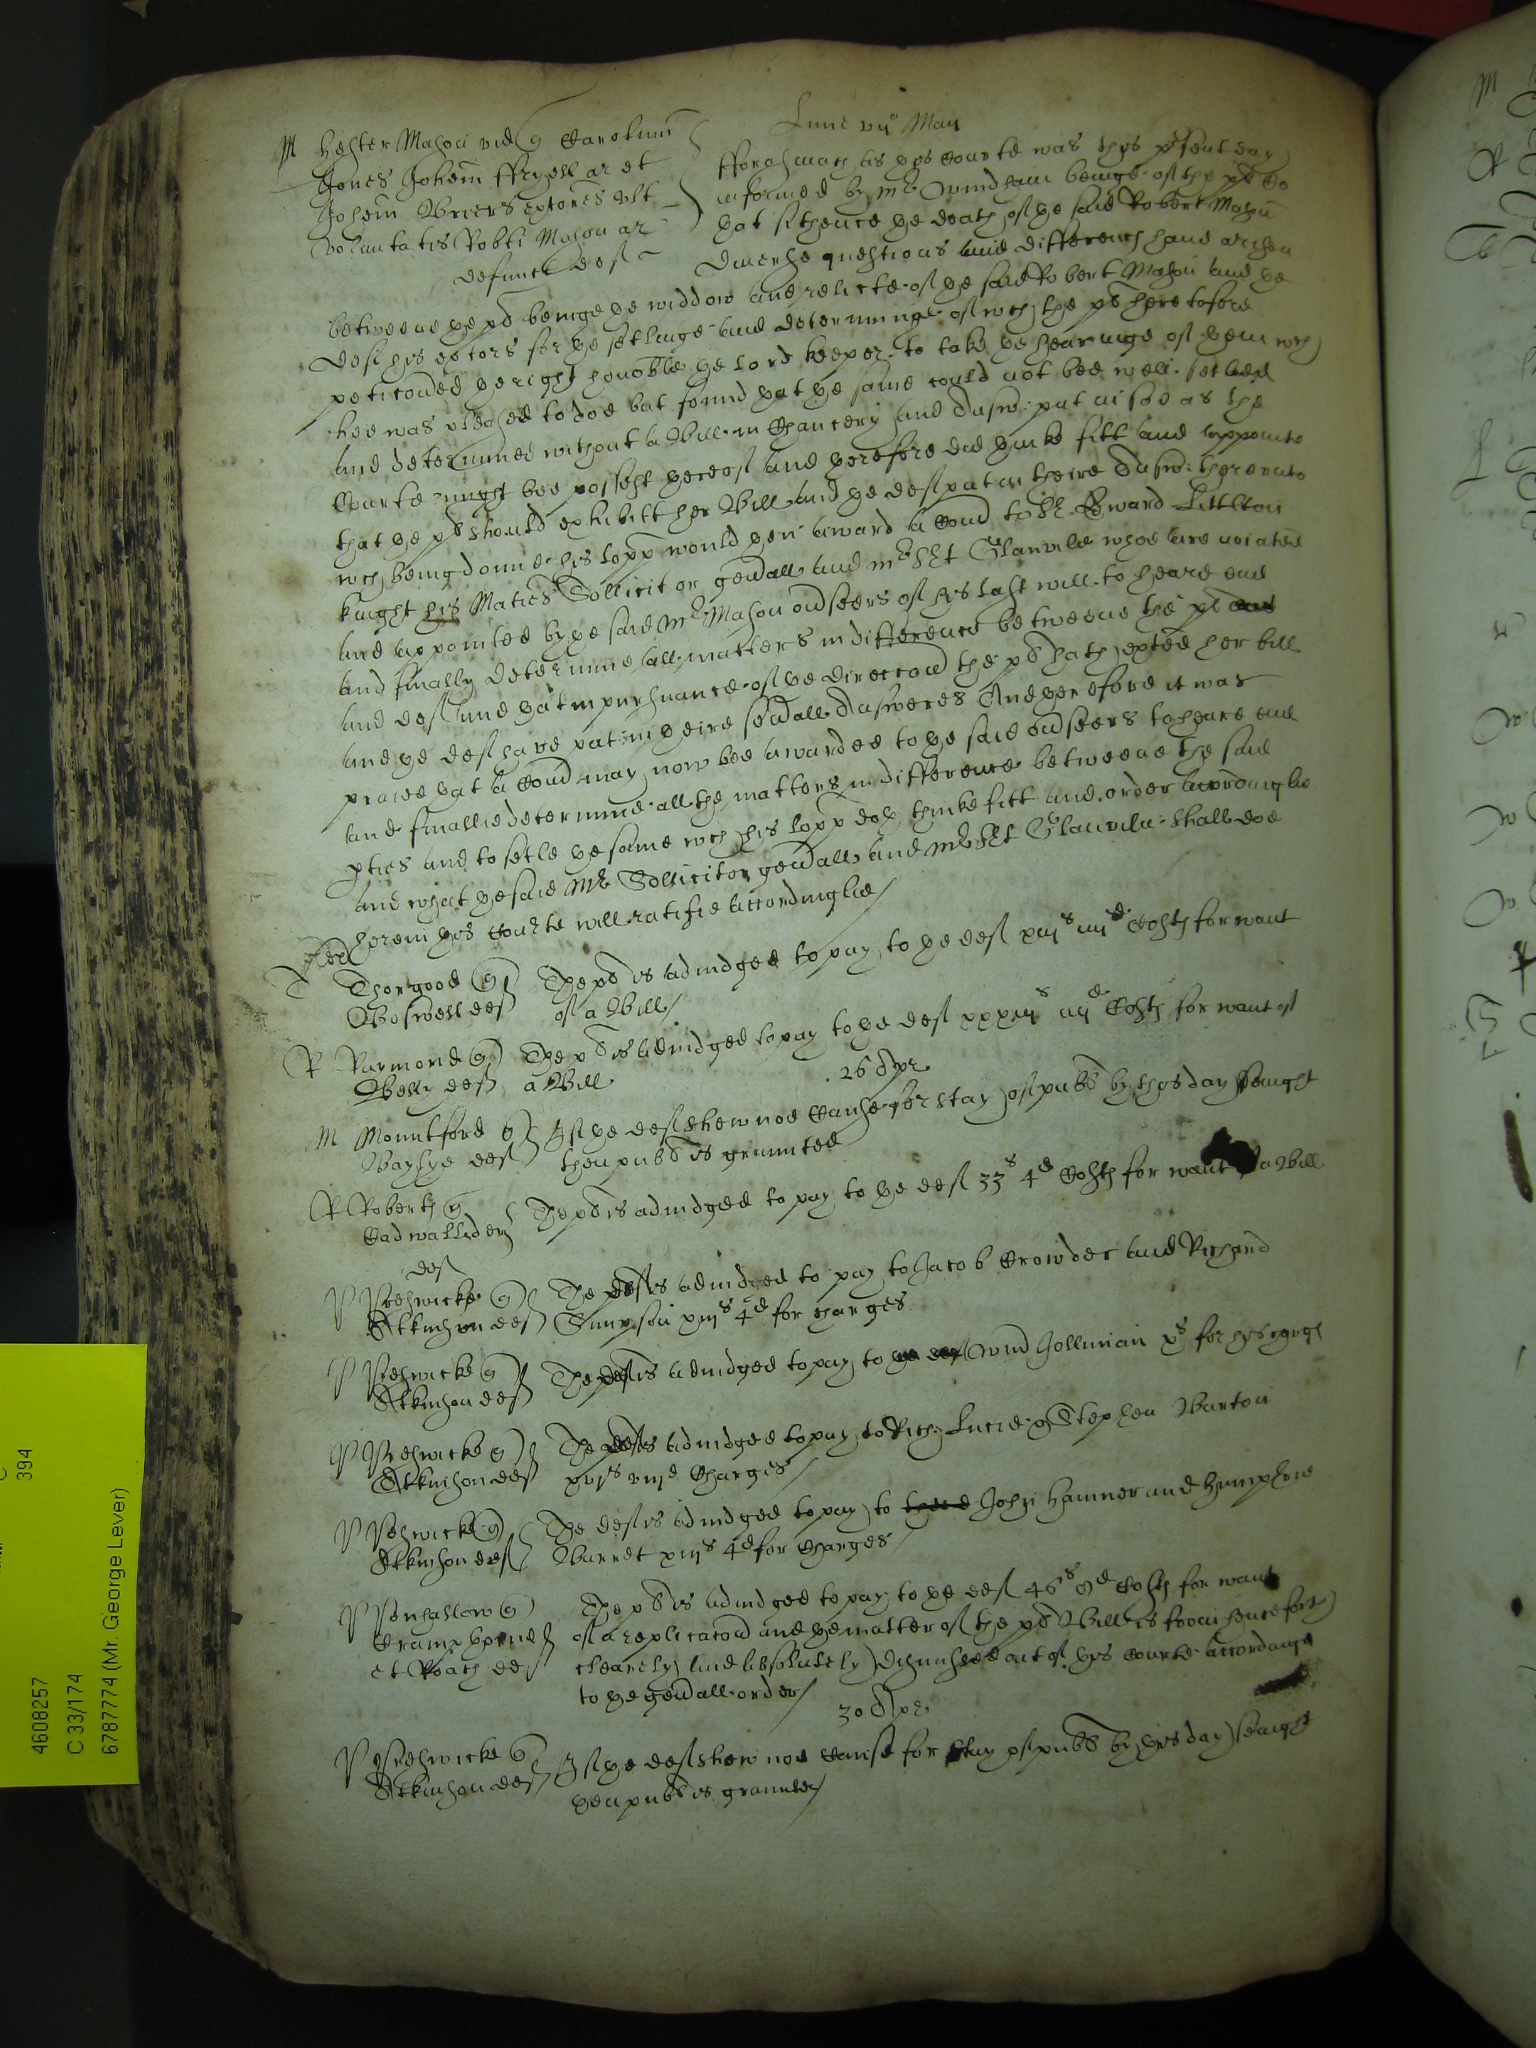 Lune vij° Maij
M Hester Mason vid q Carolum
Jones Johem ffryell ar et
Johem Briers extores ult
voluntatis Robti Mason ar
defunct def
fforasmuch as this Courte was this psent day
informed by Mr Windham beinge of the pl Co
that sithence the death of the said Robert Mason
diverse questions and differences have arisen
betweene the pl beinge the widdow and relicte of the said Robert Mason and the
def his extors for the setlinge and determininge of wch the pl heretofore
peticoned the right honoble the lord keeper to take the hearinge of them wch
hee was pleased to doe but found that the same could not bee well setled
and determined without a Bill in Chancery and answ: put in soe as the
Courte might bee possest thereof and therefore did thinke fitt and appointe
that the pl should exhibitt her Bill and the def put in theire answ: thereunto
wch being donne his lopp would then award a Comd to Sr Edward Littleton
knight his Maties Sollicitor genall and Mr Sjt Glanvile whoe are noiated
and appointed by the said Mr Mason oulseers of his last will to heare end
and finally determine all matters in difference betweene the pl
and def and that in pursuance of the direccon the pl hath exted her bill
and the def have put in theire seuall Answeres And therefore it was
praied that a Comd may now bee awarded to the said oulseers to heare end
and finallie determine all the matters in difference betweene the said
pties and to setle the same wch his lopp doth thinke fitt and order accordinglie
and what the said Mr Sollicitor genall and Mr Sjt Glanvile shall doe
herein this Courte will ratifie accordinglie
T Thorgood q
Boswell def
The pl is adiudged to pay to the def xiijs iiijd Costs for want
of a Bill
R Raymond q
Welly def
The pl is adiudged to pay to the def xxxiijs iiijd Costs for want of
a Bill
26 Apr
M Mountford q
Baylye def
If the def shew noe Cause for stay of publ by this day seaught
then publ is graunted
R Roberts q
Cadwallider
def
The pl is adiudged to pay to the def 33s 4d Costs for want of a Bill
P Prestwicke q
Atkinson def
The def is adiudged to pay to Jacob Crowder and Richard
Simpson xiijs 4d for charges
P Prestwicke q
Atkinson def
The def is adiudged to pay to Wm Jollinian xs for his chargs
P Prestwicke q
Atkinson def
The def is adiudged to pay to Rich: Lucie q Stephen Barton
xvjs viijd Charges
P Prestwicke q
Atkinson def
The def is adiudged to pay to John Hanmer and Humphrie
Barret xiijs 4d for Charges
P Penhallow q
et Roach def
The pl is adiudged to pay to the def 46s 9d Costs for want
of a replicacon and the matter of the pl Bill is from henceforth
clearely and absolutely dismissed out of this Courte accordinge
to the genall order
30 Apr
P Prestwicke q
Atkinson def
If the def shew noe Cause for stay of publ by this day seaught
then publ is graunted
394
4608257
C 33/174
6787774 (Mr. George Lever)